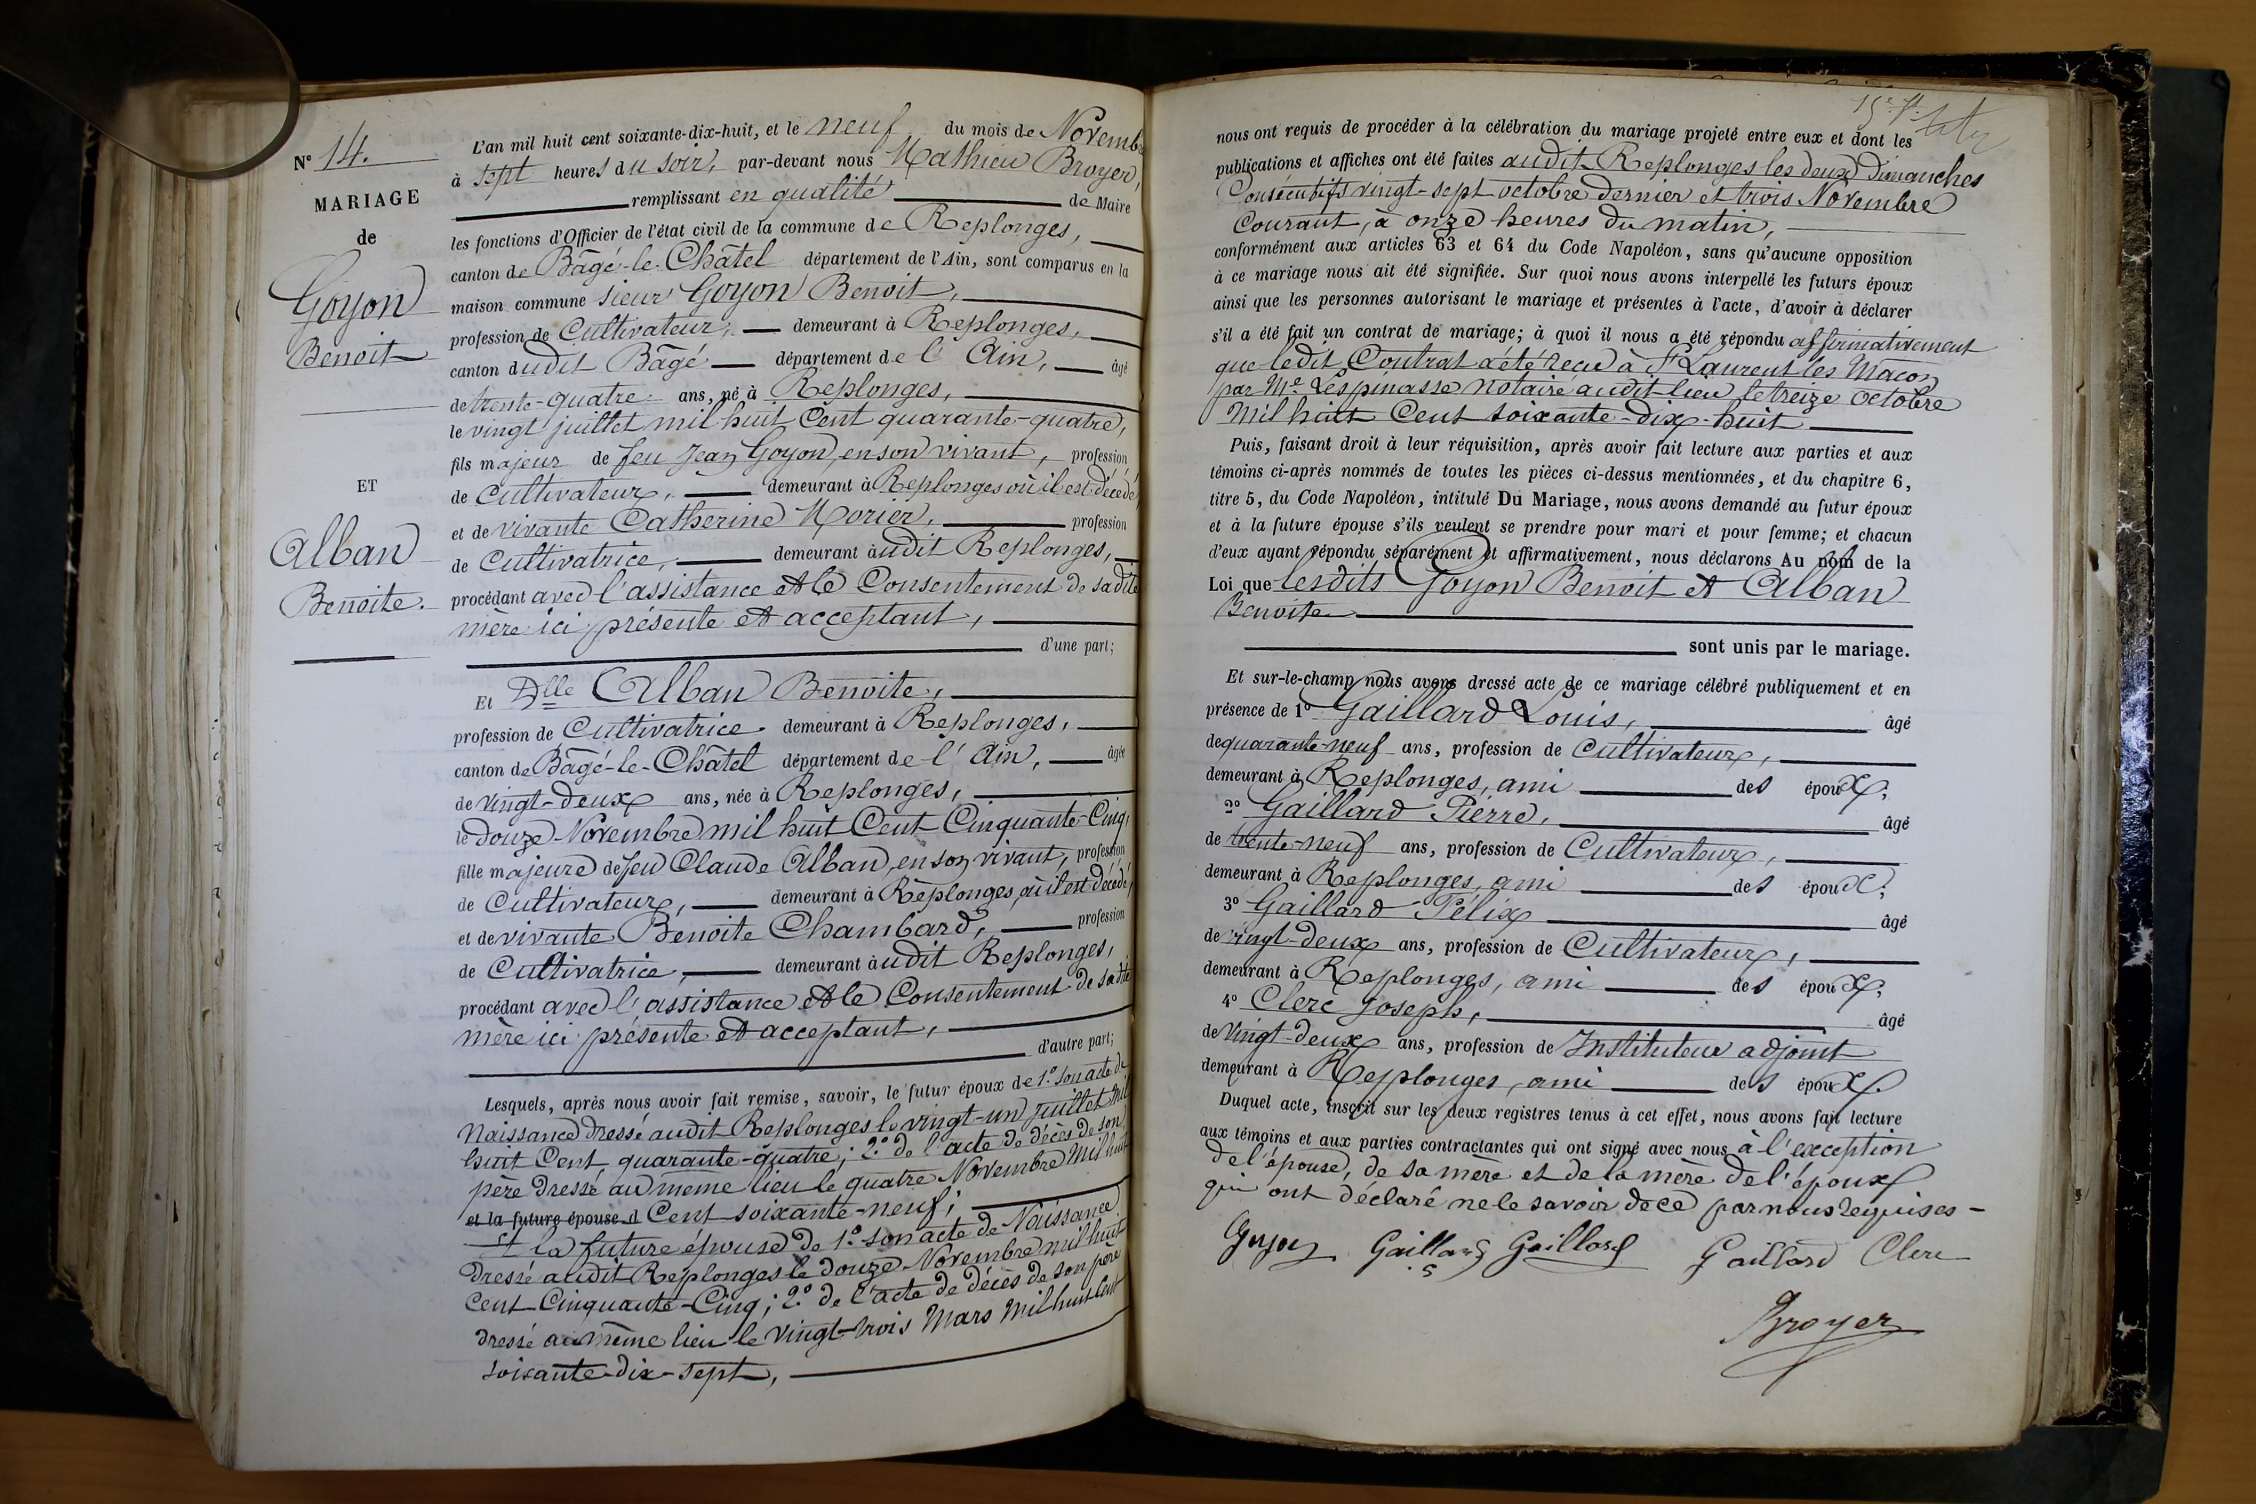 N° 14.
MARIAGE
de
Goyon
Benoit
ET
Alban
Benoite.
L'an mil huit cent soixante-dix-huit, et le neuf du mois de Novembre
à sept heures du soir, par-devant nous Mathieu Broyer,
remplissant en qualité de Maire
les fonctions d'Officier de l'état civil de la commune de Replonges,
canton de Bâgé-le-Châtel département de l'Ain, sont comparus en la
maison commune sieur Goyon Benoit,
profession de Cultivateur, demeurant à Replonges,
canton dudit Bâgé département de l'Ain, âgé
de trente-quatre ans, né à Replonges,
le vingt juillet mil huit Cent quarante-quatre,
fils majeur de feu Jean Goyon, en son vivant, profession
de Cultivateur, demeurant à Replonges où il est décédé,
et de vivante Catherine Morier, profession
de Cultivatrice, demeurant audit Replonges,
procédant avec l'assistance et le Consentement de sa dite
mère ici présente et acceptant,
d'une part;
Et Dlle Alban Benoite,
profession de Cultivatrice demeurant à Replonges,
canton de Bâgé-le-Châtel département de l'Ain, âgée
de vingt-deux ans, née à Replonges,
le douze Novembre mil huit Cent Cinquante-Cinq,
fille majeure de feu Claude Alban, en son vivant, profession
de Cultivateur, demeurant à Replonges, où il est décédé,
et de vivante Benoite Chambard, profession
de Cultivatrice, demeurant audit Replonges,
procédant avec l'assistance et le Consentement de sa dite
mère ici présente et acceptant,
d'autre part;
Lesquels, après nous avoir fait remise, savoir, le futur époux de 1° son acte de
Naissance dressé audit Replonges le vingt-un juillet mil
huit Cent quarante-quatre; 2° de l'acte de décès de son
père dressé au même lieu le quatre Novembre mil huit
et la future épouse d Cent soixante-neuf;
Et la future épouse de 1° son acte de Naissance
dressé audit Replonges le douze Novembre mil huit
Cent Cinquante-Cinq; 2° de l'acte de décès de son père
dressé au même lieu le vingt-trois Mars mil huit Cent
soixante-dix-sept,
nous ont requis de procéder à la célébration du mariage projeté entre eux et dont les
publications et affiches ont été faites audit Replonges les deux Dimanches
Consécutifs vingt-sept octobre dernier et trois Novembre
Courant, à onze heures du matin,
conformément aux articles 63 et 64 du Code Napoléon, sans qu'aucune opposition
à ce mariage nous ait été signifiée. Sur quoi nous avons interpellé les futurs époux
ainsi que les personnes autorisant le mariage et présentes à l'acte, d'avoir à déclarer
s'il a été fait un contrat de mariage; à quoi il nous a été répondu affirmativement
que ledit Contrat a été reçu à St Laurent les Macon
par Me Lespinasse notaire audit lieu le treize octobre
Mil huit Cent soixante-dix-huit
Puis, faisant droit à leur réquisition, après avoir fait lecture aux parties et aux
témoins ci-après nommés de toutes les pièces ci-dessus mentionnées, et du chapitre 6,
titre 5, du Code Napoléon, intitulé Du Mariage, nous avons demandé au futur époux
et à la future épouse s'ils veulent se prendre pour mari et pour femme; et chacun
d'eux ayant répondu séparément et affirmativement, nous déclarons Au nom de la
Loi que lesdits Goyon Benoit et Alban
Benoite
sont unis par le mariage.
Et sur-le-champ nous avons dressé acte de ce mariage célébré publiquement et en
présence de 1° Gaillard Louis, âgé
de quarante-neuf ans, profession de Cultivateur,
demeurant à Replonges, ami des époux;
2° Gaillard Pierre, âgé
de trente-neuf ans, profession de Cultivateur,
demeurant à Replonges, ami des époux;
3° Gaillard Félix âgé
de vingt-deux ans, profession de Cultivateur,
demeurant à Replonges, ami des époux;
4° Clerc Joseph, âgé
de Vingt-deux ans, profession de Instituteur adjoint
demeurant à Replonges, ami des époux.
Duquel acte, inscrit sur les deux registres tenus à cet effet, nous avons fait lecture
aux témoins et aux parties contractantes qui ont signé avec nous à l'exception
de l'épouse, de sa mère et de la mère de l'époux
qui ont déclaré ne le savoir de ce par nous requises -
Goyon Gaillard Gaillard Gaillard Clerc
Broyer